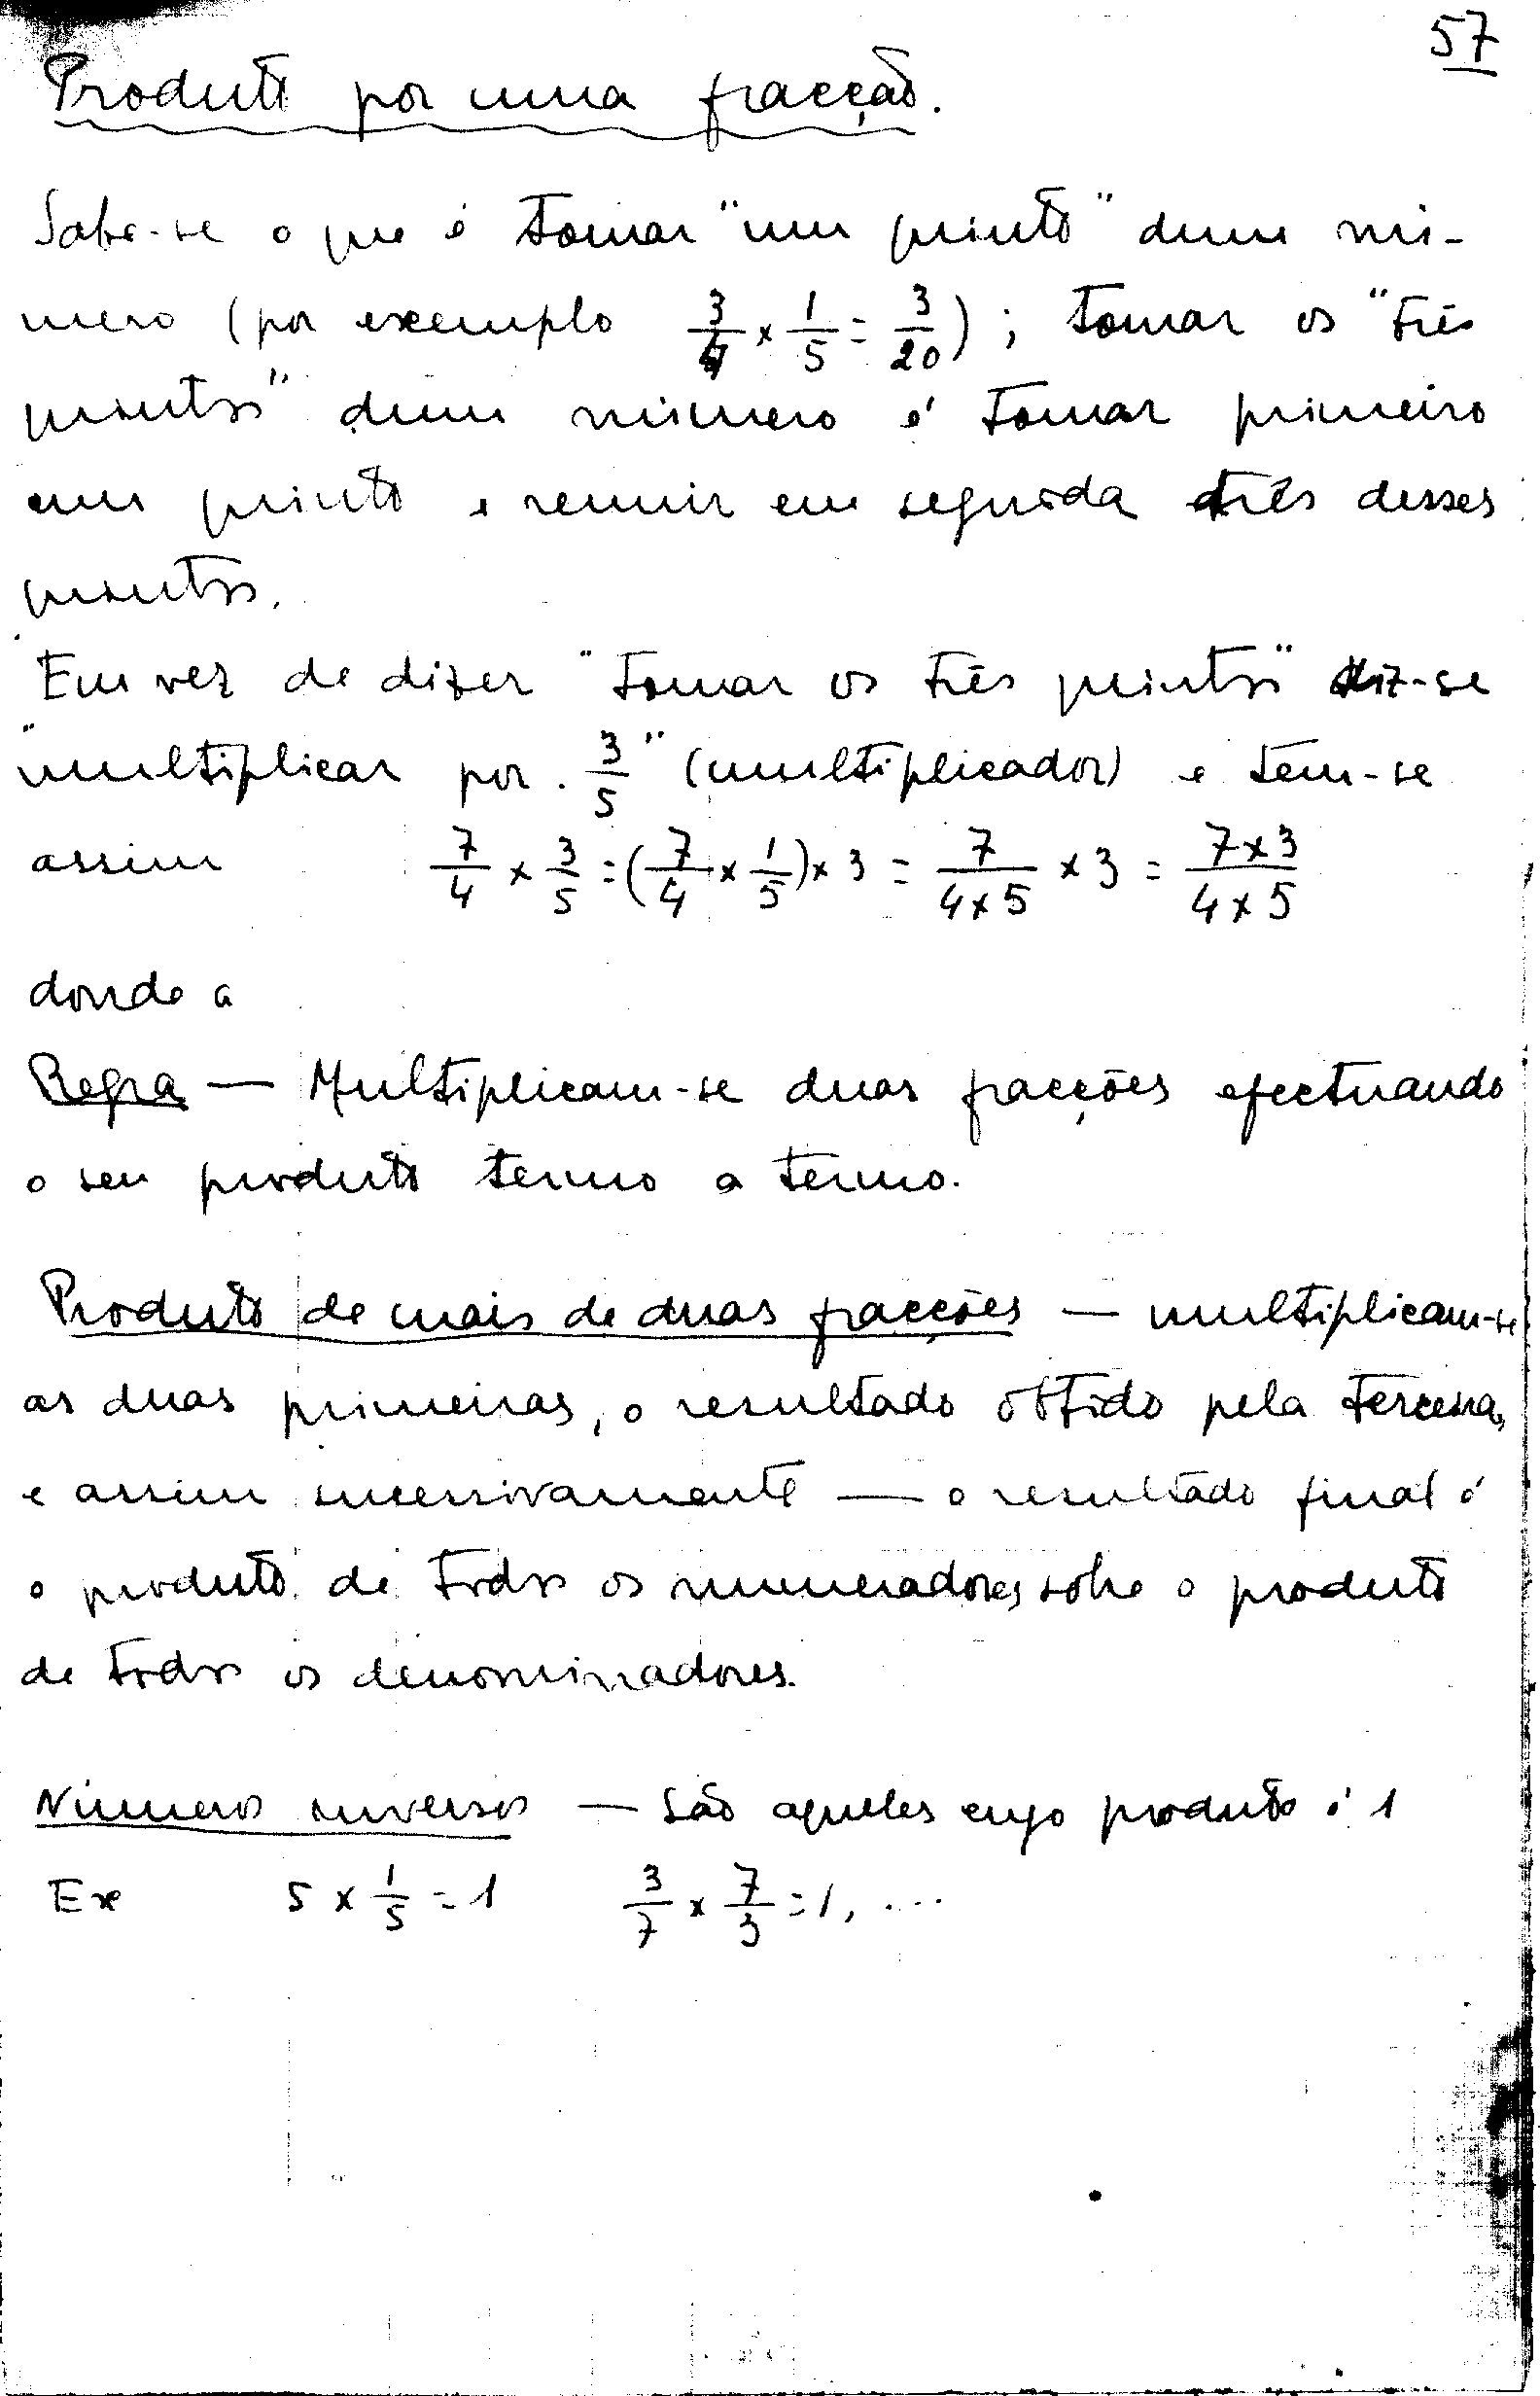 57
Produto por uma fracção.
Sabe-se o que é tomar "um quinto" dum nú-
mero (por exemplo 3/4 × 1/5 = 3/20) ; tomar os "três
quintos" dum número é tomar primeiro
um quinto e reunir em seguida três desses
quintos.
Em vez de dizer "tomar os três quintos" diz-se
"multiplicar por 3/5" (multiplicador) e tem-se
assim 7/4 × 3/5 = (7/4 × 1/5) × 3 = 7/(4×5) × 3 = (7×3)/(4×5)
donde a
Regra — Multiplicam-se duas fracções efectuando
o seu produto termo a termo.
Produto de mais de duas fracções — multiplicam-se
as duas primeiras, o resultado obtido pela terceira,
e assim sucessivamente — o resultado final é
o produto de todos os numeradores sobre o produto
de todos os denominadores.
Números inversos — São aqueles cujo produto é 1
Ex 5 × 1/5 = 1 3/7 × 7/3 = 1, ....